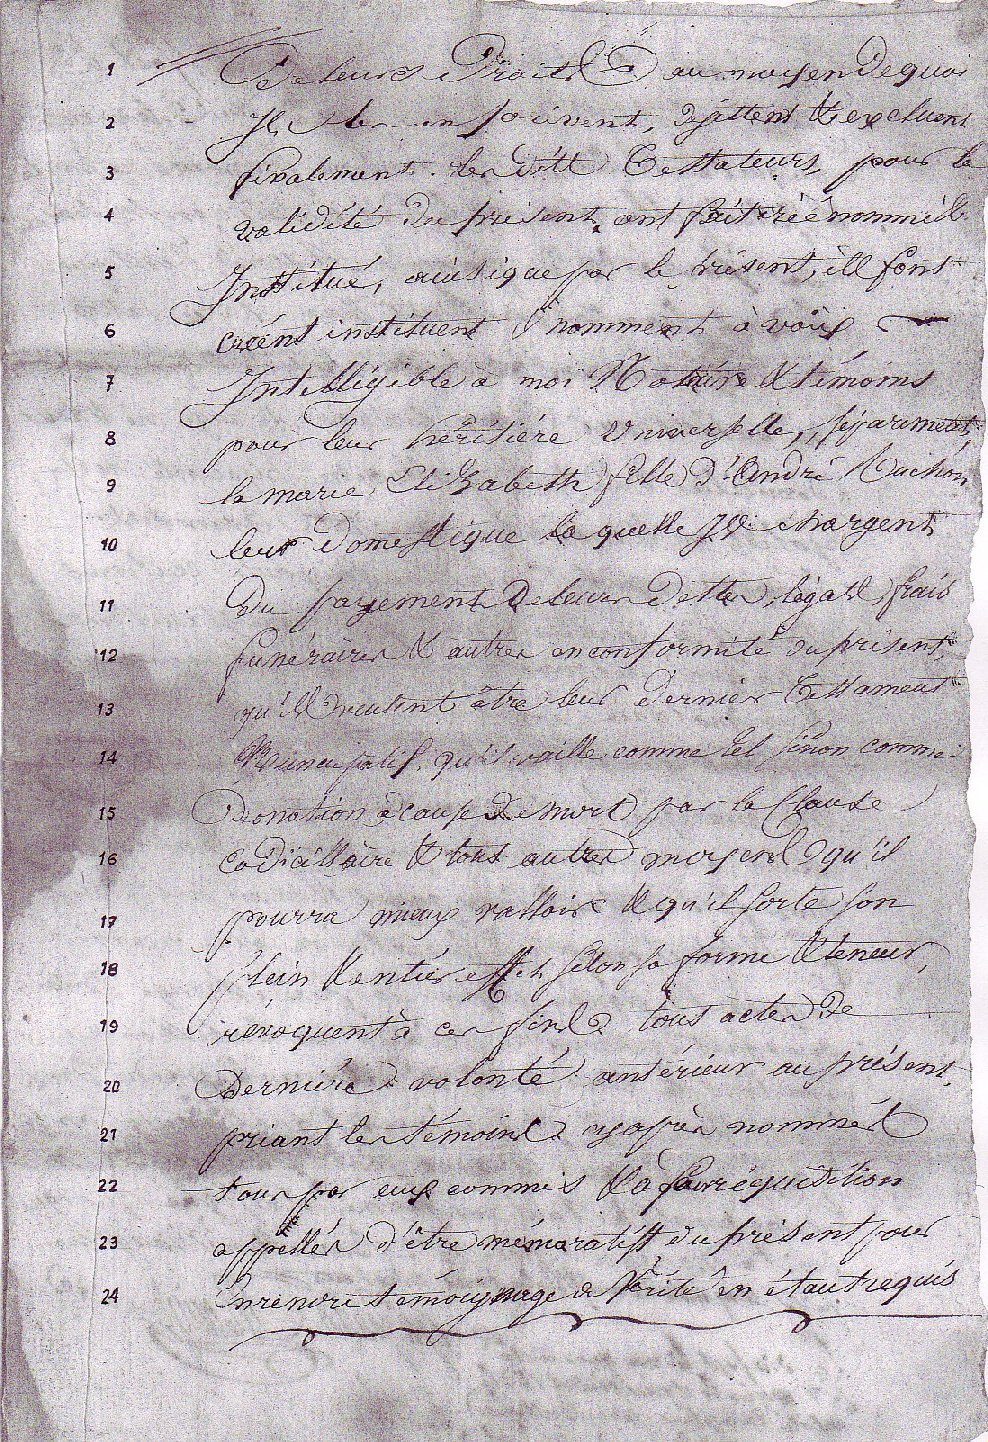 1 De leurs Droits & au moyen de quoi
2 Ils les en privent, déjettent & excluent
3 finalement lesdits Testateurs, pour la
4 validité du présent, ont fait créé nommé &
5 Institué, ainsi que par le présent, ils font
6 créent instituent & nomment à voix
7 Intelligible à moi Notaire & témoins
8 pour leur héritière Universelle, séparement,
9 la marie Elizabeth fille d'André
10 leur domestique laquelle Ils chargent
11 Du payement de leurs Dettes, légats, frais
12 funéraires & autres en conformité du présent
13 qu'ils veulent être leur dernier Testament
14 Nuncupatif, qu'il vaille comme tel sinon comme
15 Donation à cause de mort par la Clause
16 Codicillaire & tous autres moyens qu'il
17 pourra mieux valloir & qu'il sorte son
18 plein & entier effet selon sa forme & teneur,
19 révoquent à ces fins tous actes de
20 Dernière volonté antérieur au présent,
21 priant les témoins cy après nommés
22 tous par eux connus & à leur réquisition
23 appellés d'être mémoratifs du présent pour
24 en rendre témoignage de Vérité en étant requis